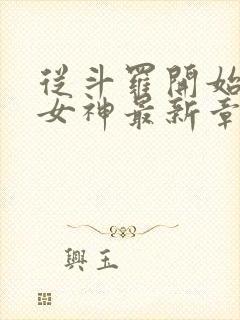 從斗羅開始
女神最新章
興玉